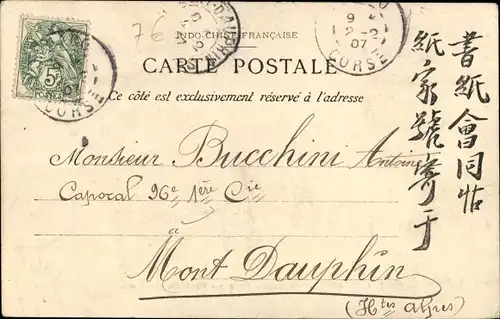 7€
INDO-CHINE FRANÇAISE
CARTE POSTALE
Ce côté est exclusivement réservé à l'adresse
Monsieur Bucchini Antoine
Caporal 96e 1ère Cie
à
Mont Dauphin
(Htes Alpes)
書紙會同帖
紙家號寄于
5c
POSTES
CORSE
9
07
CORSE